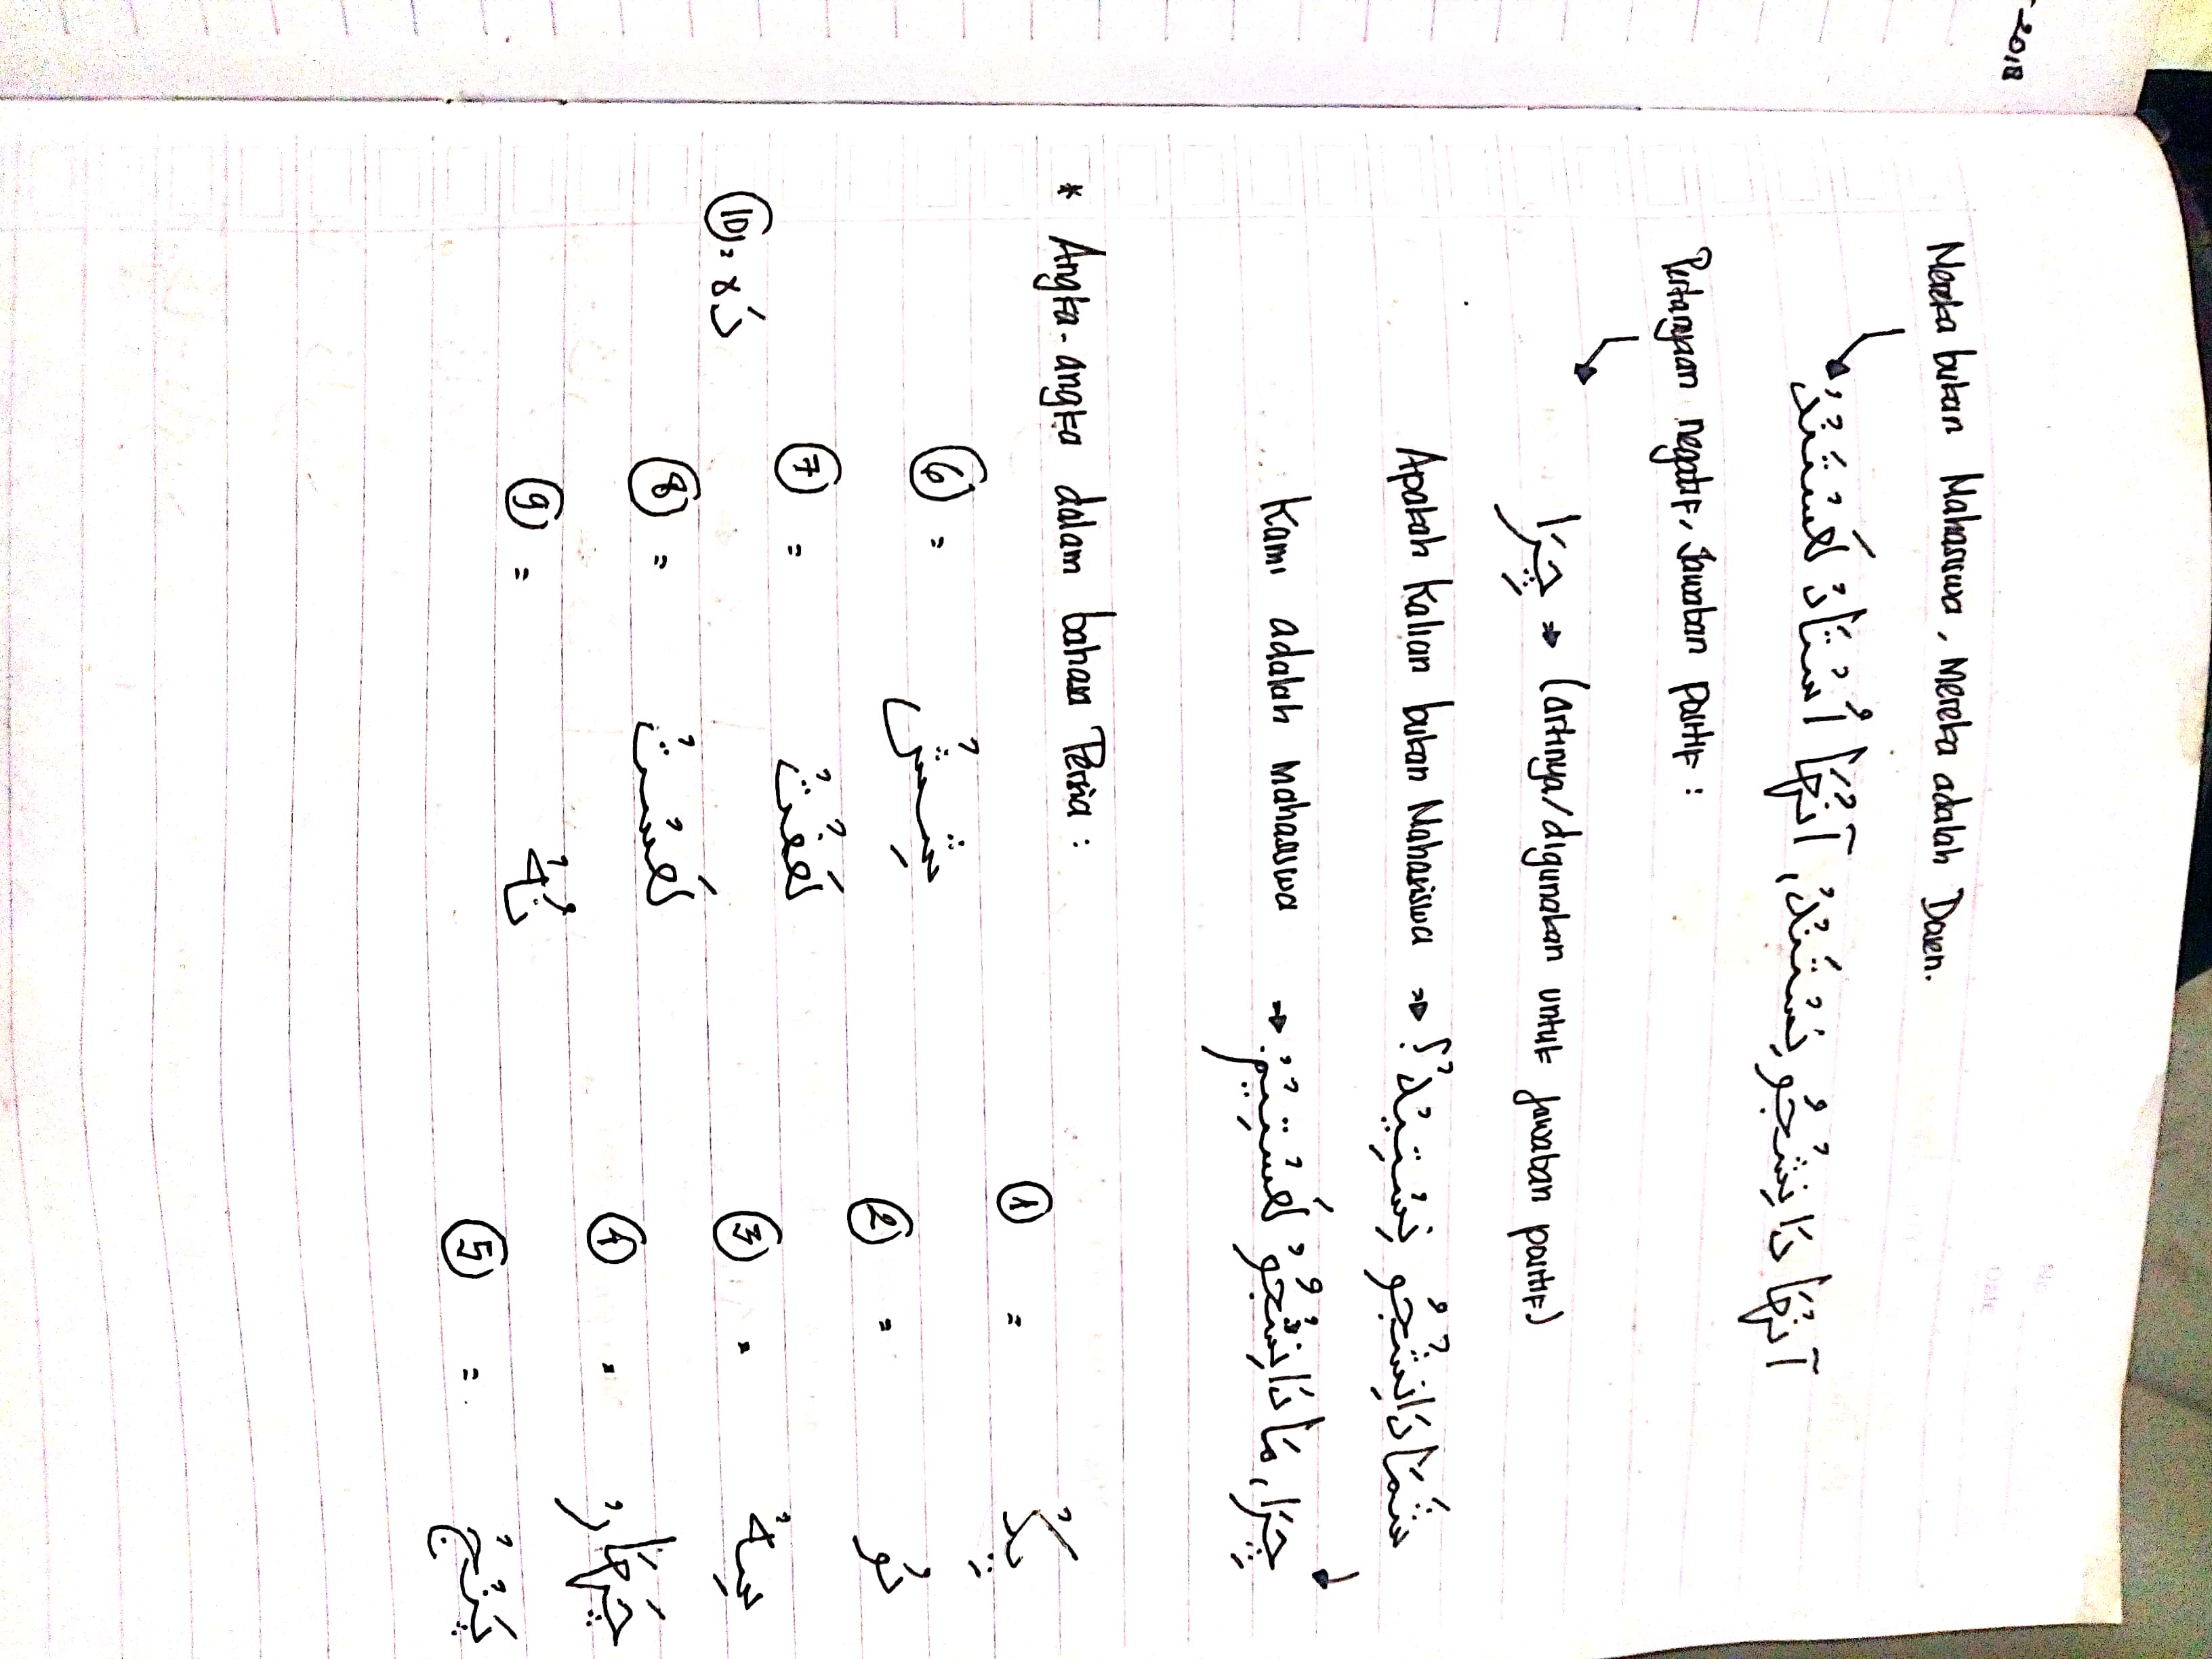 -2018
Mereka bukan Mahasiswa, Mereka adalah Dosen.
آنْهَا دَانِشْجُو نِسْتَنْدْ، آنْهَا اُسْتَادْ هَسْتَنْدْ
Pertanyaan negatif, Jawaban positif :
چِرَا ⇒ (artinya/digunakan untuk jawaban positif)
Apakah Kalian bukan Mahasiswa ⇒ شُمَا دَانِشْجُو نِسْتِیْدْ؟
Kami adalah mahasiswa ⇒ چِرَا، مَا دَانِشْجُو هَسْتِیْمْ.
* Angka-angka dalam bahasa Persia :
① = یِکْ
⑥ = شِشْ
② = دُو
⑦ = هَفْتْ
③ = سِهْ
⑩ = دَه
⑧ = هَشْتْ
④ = چَهَارْ
⑨ = نُهْ
⑤ = پَنْجْ